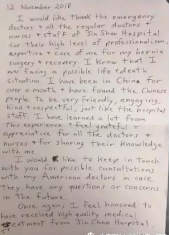 12 November 2018
I would like thank the emergency
doctors + all the regular doctors +
nurses + staff of Jin Shan Hospital
for their high level of professionalism,
expertise + care of me for my hernia
surgery + recovery. I know that I
was facing a possible life + death
situation. I have been in China for
over a month + have found the Chinese
people to be very friendly, engaging,
kind + respectful, just like the hospital
staff. I have learned a lot from
this experience + feel grateful +
appreciative for all the doctors +
nurses for sharing their knowledge
with me.
I would like to keep in touch
with you for possible consultations
with my American doctors in case
they have any questions or concerns
in the future.
Once again, I feel honored to
have received high quality medical
treatment from Jin Shan Hospital